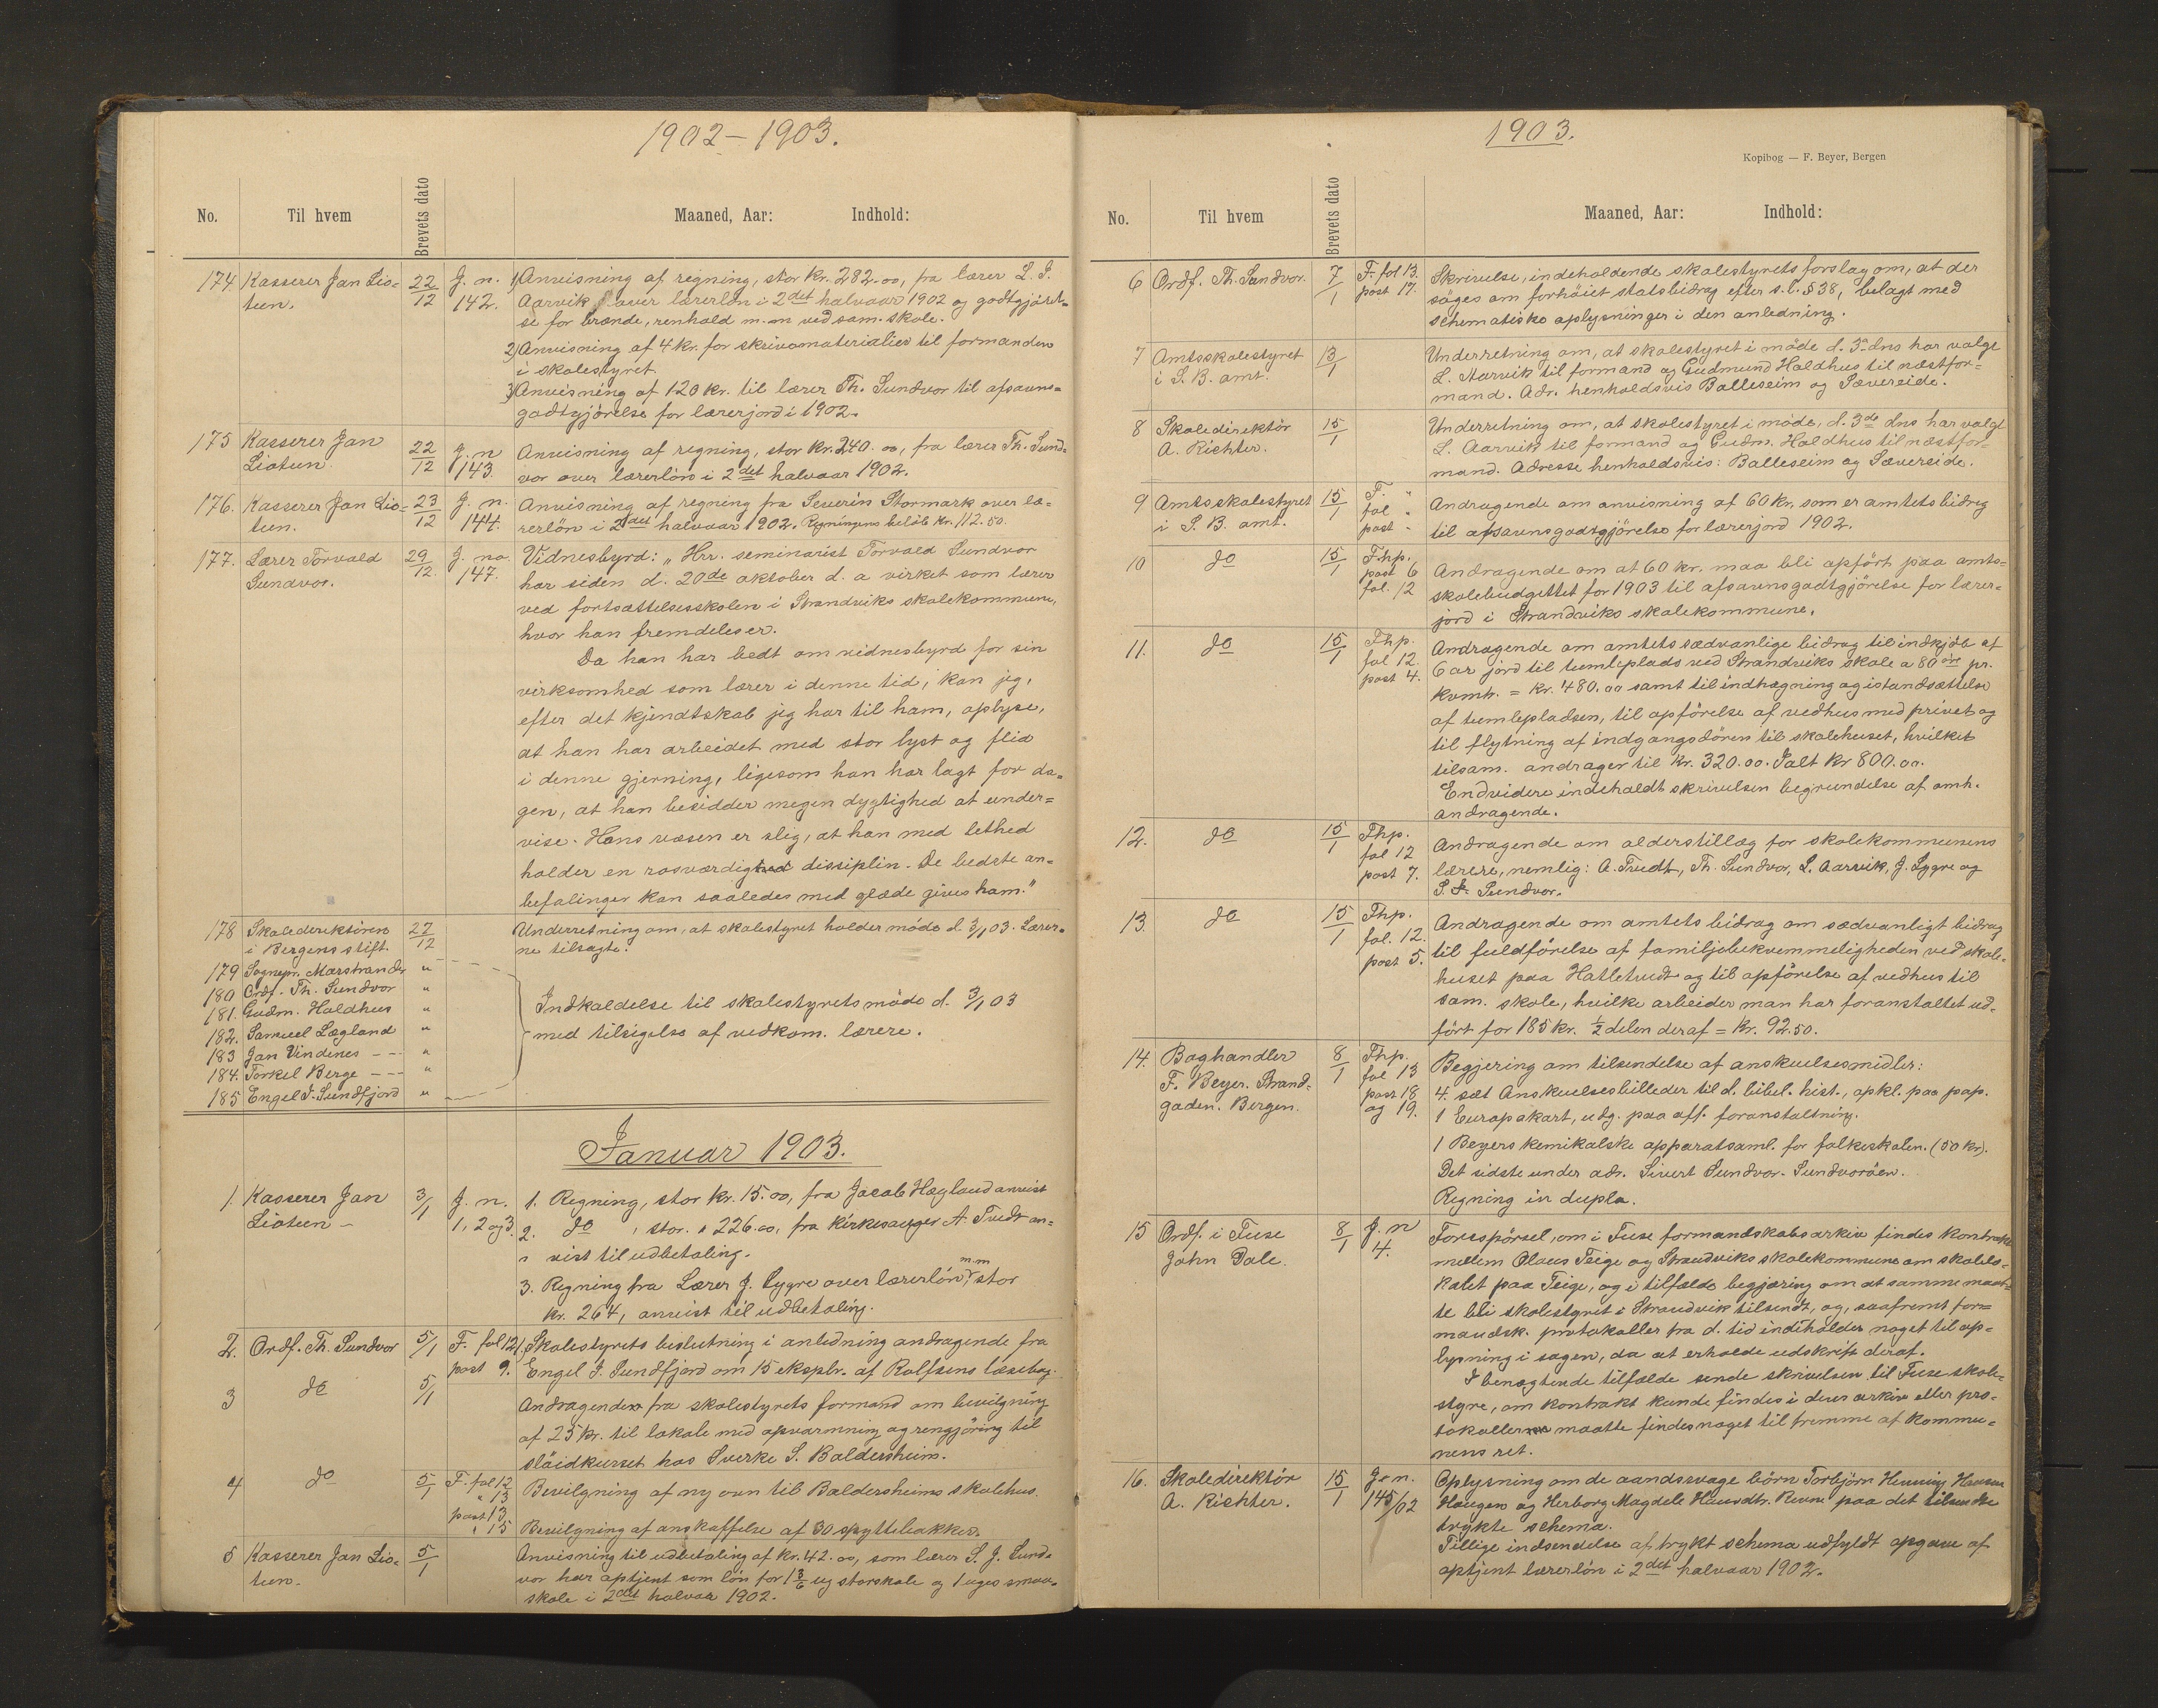 1902-1903.
No. Til hvem Brevets dato Maaned, Aar: Indhold:
174 Kasserer Jan Lio- 22/12 J. n. 1) Anvisning af regning, stor kr. 282.00, fra lærer L. S.
teen. 142. Aarvik over lærerløn i 2det halvaar 1902 og godtgjørel-
se for brænde, renhold m. m ved sam. skole.
2) Anvisning af 4 kr. for skrivematerialier til formanden
i skolestyret.
3) Anvisning af 120 kr. til lærer Th. Sundvor til afsavns-
godtgjörelse for lærerjord i 1902.
175 Kasserer Jan 22/12 J. n Anvisning af regning, stor kr. 240.00, fra lærer Th. Sund-
Lioteen 143. vor over lærerlön i 2det halvaar 1902.
176. Kasserer Jan Lio- 23/12 J. n. Anvisning af regning fra Severin Stormark over læ-
teen. 144. rerlön i 2det halvaar 1902. Regningens belöb kr. 112.50.
177. Lærer Torvald 29/12. J. no Vidnesbyrd: „Hrr. seminarist Torvald Sundvor
Sundvor. 147. har siden d. 20de oktober d. a virket som lærer
ved fortsættelsesskolen i Strandviks skolekommune,
hvor han fremdeles er.
Da han har bedt om vidnesbyrd for sin
virksomhed som lærer i denne tid, kan jeg,
efter det kjendtskab jeg har til ham, oplyse,
at han har arbeidet med stor lyst og flid
i denne gjerning, ligesom han har lagt for da-
gen, at han besidder megen dygtighed at under=
vise. Hans væsen er slig, at han med lethed
holder en rosværdig dissiplin. De bedste an-
befalinger kan saaledes med glæde gives ham."
178 Skoledirektören 27/12 Underretning om, at skolestyret holder möde d. 3/1 03. Lærer-
i Bergens stift. ne tilsagte.
179 Sognepr. Marstrander "
180 Ordf. Th. Sundvor "
181. Gudm. Holdhus " Indkaldelse til skolestyretsmöde d. 3/1 03
182. Samuel Lægland " med tilsigelse af vedkom. lærere.
183 Jan Vindenes - - "
184. Torkel Berge - - - "
185 Engel J. Sundfjord "
Januar 1903.
1. Kasserer Jan 3/1 J. n. 1. Regning, stor kr. 15.00, fra Jacob Hægland anvist
Lioteen - 1, 2 og 3. 2. do , stor. " 226.00, fra Kirkeværges A. Tvedt an-
" vist til udbetaling.
3. Regning fra Lærer J. Lygre over lærerlön m.m, stor
kr. 264, anvist til udbetaling.
2. Ordf. Th. Sundvor 5/1 F. fol 12 1. Skolestyrets beslutning i anledning andragende fra
post 9. Engel J. Sundfjord om 15 eksplr. af Rolfsens læsebog.
3 do 5/1 Andragender fra skolestyrets formand om bevilgning
af 25 kr. til lokale med opvarmning og rengjöring til
slöidkurset hos Sverke S. Baldersheim.
4 do 5/1 F. fol 12 Bevilgning af ny ovn til Baldersheims skolehus.
" 13
post 13
" 15 Bevilgning af anskaffelse af 30 spyttebakker.
5 Kasserer Jan Lio- 5/1 Anvisning til udbetaling af kr. 42.00, som lærer S. J. Sund-
teen. vor har optjent som lön for 1 3/6 ug storskole og 1 uges smaa-
skole i 2det halvaar 1902.
1903.
Kopibog — F. Beyer, Bergen
No. Til hvem Brevets dato Maaned, Aar: Indhold:
6 Ordf. Th. Sundvor. 7/1 F. fol 13. Skrivelse, indeholdende skolestyrets forslag om, at der
post 17. söges om forhöiet statsbidrag efter s. l. § 38, belagt med
schematiske oplysninger i den anledning.
7 Amtsskolestyret 13/1 Underretning om, at skolestyret i möde d. 3. dns har valgt
i S. B. amt. L. Aarvik til formand og Gudmund Holdhus til næstfor-
mand. Adr. henholdsvis Balleseim og Sævereide.
8 Skoledirektör 15/1 Underretning om, at skolestyret i möde, d. 3de dns har valgt
A. Richter. L. Aarvik til formand og Gudm. Holdhus til næstfor-
mand. Adresse henholdsvis: Balleseim og Sævereide.
9 Amtsskolestyret 15/1 F. " Andragende om anvisning af 60 kr, som er amtets bidrag
i S. B. amt. fol " til afsavnsgodtgjörelse for lærerjord 1902.
post "
10 do 15/1 Fhp. Andragende om at 60 kr. maa bli opfört paa amts-
post 6 skolebudgettet for 1903 til afsavnsgodtgjörelse for lærer-
fol. 12 jord i Strandviks skolekommune.
11. do 15/1 Fhp. Andragende om amtets sædvanlige bidrag til indkjöb af
fol 12. 6 ar jord til tumleplads ved Strandviks skole a 80 öre pr.
post 4. kvmtr. = kr. 480.00 samt til indhegning og istandsættelse
af tumlepladsen, til opförelse af vedhus med privet og
til flytning af indgangsdören til skolehuset, hvilket
tilsam. andrager til kr. 320.00. Ialt kr 800.00.
Endvidere indeholdt skrivelsen begrundelse af omh.
andragende.
12. do 15/1 Fhp. Andragende om alderstillæg for skolekommunens
fol 12 lærere, nemlig: A. Tvedt, Th. Sundvor, L. Aarvik, J. Lygre og
post 7. S. J. Sundvor.
13. do 15/1 Fhp. Andragende om amtets bidrag om sædvanligt bidrag
fol. 12. til fuldförelse af familjebekvemmeligheden ved skole-
post 5. huset paa Hatletvedt og til opförelse af vedhus til
sam. skole, hvilke arbeider man har foranstaltet ud-
fört for 185 kr. 1/2 delen deraf = kr. 92.50.
14. Boghandler 8/1 Fhp. Begjering om tilsendelse af anskuelsesmidler:
F. Beyer. Strand- fol 13 4. sæt Anskuelsesbilleder til d. bibel. hist., opkl. paa pap.
gaden. Bergen. post 18 1 Europakart, udg. paa off. foranstaltning.
og 19.
1 Beyers kemikalske apparatsaml. for folkeskolen. (50 kr).
Det sidste under adr. Sivert Sundvor. Sundvoröen.
Regning in dupla.
15 Ordf. i Fuse 8/1 J. n Forespörsel, om i Fuse formandskabs arkiv findes kontrakt
John Dale. 4. mellem Olaus Teige og Strandviks skolekommune om skolelo-
kalet paa Teige, og i tilfælde begjæring om at samme maat-
te bli skolestyret i Strandvik tilsendt, og, saafremt for=
mandsk. protokoller fra d. tid indeholder noget til op-
lysning i sagen, da at erholde udskrift deraf.
I benægtende tilfælde sende skrivelsen til Fuse skole-
styre, om kontrakt kunde findes i deres arkiv eller pro-
tokoller maatte findes noget til fremme af kommu-
nens ret.
16. Skoledirektör 15/1 J. n. Oplysning om de aandssvage börn Torbjörn Henning Hansen
A. Richter. 145/02 Haugen og Herborg Magdele Hansdtr. Revne paa det tilsendte
trykte schema.
Tillige indsendelse af trykt schema udfyldt opgave af
optjent lærerlön i 2det halvaar 1902.